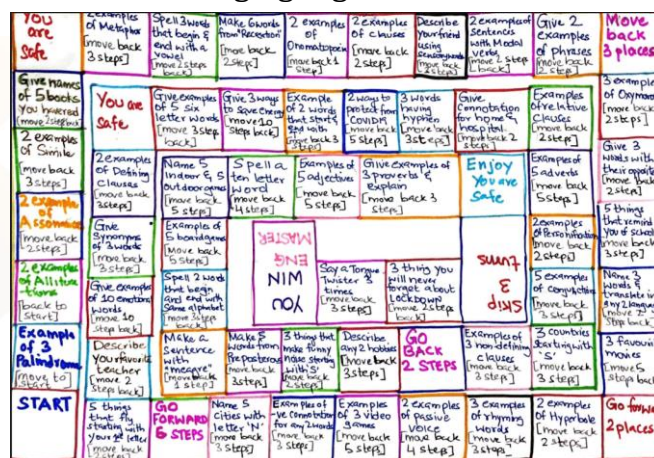 You are safe
2 examples of Metaphor
[move back 3 steps]
Spell 3 words that begin & end with a vowel
[move 2 steps back]
Make 6 words from "Resection"
[move back 2 steps]
2 examples of Onomatopoeia
[move back 1 step]
2 examples of clauses
[Move back 2 steps]
Describe your friend using
[move back
2 examples of Sentences with Modal verbs
[move 2 steps back]
Give 2 examples of phrases
[move back 2 steps]
Move back 3 places
Give names of 5 books you
[move 2 steps back]
You are safe
Give examples of 5 six letter words
[move 3 step back]
Give 3 ways to save energy
[move 10 steps back]
Example of 2 words that start & end with
[move back 3 steps]
2 ways to protect from COVID19
[move back 5 steps]
3 words having hyphen
[move back 3 steps]
Give connotation for home & hospital
[move back 2 steps]
Examples of relative clauses
[Move back 2 steps]
3 example of Oxymoron
[move back 2 steps]
2 example of Simile
[move back 3 steps]
2 examples of Defining Clauses
[move back 3 steps]
Name 5 indoor & 5 outdoor games
[move back 5 steps]
Spell a ten letter word
[move back 4 steps]
Examples of 5 adjectives
[move back 5 steps]
Give examples of 3 proverbs & explain
[move back 3 steps]
Enjoy You are Safe
Examples of 5 adverbs
[move back 5 steps]
Give 3 words with their opposite
[move back 2 steps]
2 example of Assonance
[move back 2 steps]
Give Synonyms of 3 words
[move back 3 steps]
Examples of 5 board games
[Move back 5 steps]
YOU WIN
ENG MASTER
Skip 3 turns
2 examples of Personification
[move back 2 steps]
5 things that remind you of school
[move back 3 steps]
2 examples of Alliterations
[back to start]
Give examples of 10 emotions words
[move 10 step back]
Spell 2 words that begin and end with same alphabet
[move 3 steps back]
Say a Tongue Twister 3 times
[move back 3 steps]
3 thing you will never forget about lockdown
[move 2 steps back]
5 examples of conjunction
[move back 3 steps]
Name 3 words & translate in any 2 languages
Example of 3 Palindrome
[move to start]
Describe your favorite teacher
[move 2 steps back]
Make a sentence with "meagre"
[move back 1 step]
Make 5 words from Preposterous
[move back 3 steps]
3 things that make funny noise starting with S
[move back 2 steps]
Describe any 2 hobbies
[move back 3 steps]
GO BACK 2 STEPS
Examples of 3 non defining clauses
[move back 3 steps]
3 countries starting with 'S'
[Move back 3 steps]
3 favourite movies
[move 5 steps back]
START
5 things that fly starting with your 1st letter
[move back 3 steps]
GO FORWARD 6 STEPS
Name 5 cities with letter 'N'
[move back 3 steps]
Examples of -ve Connotation for any 2 words
[move back 3 steps]
Example of 3 video games
[move back 5 steps]
2 examples of passive voice
[move back 4 steps]
3 example of rhyming words
[move back 3 steps]
2 example of Hyperbole
[move back 2 steps]
Go forward 2 places